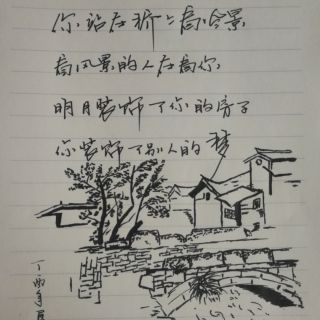 你站在桥上看风景
看风景的人在看你
明月装饰了你的房子
你装饰了别人的梦
丁酉